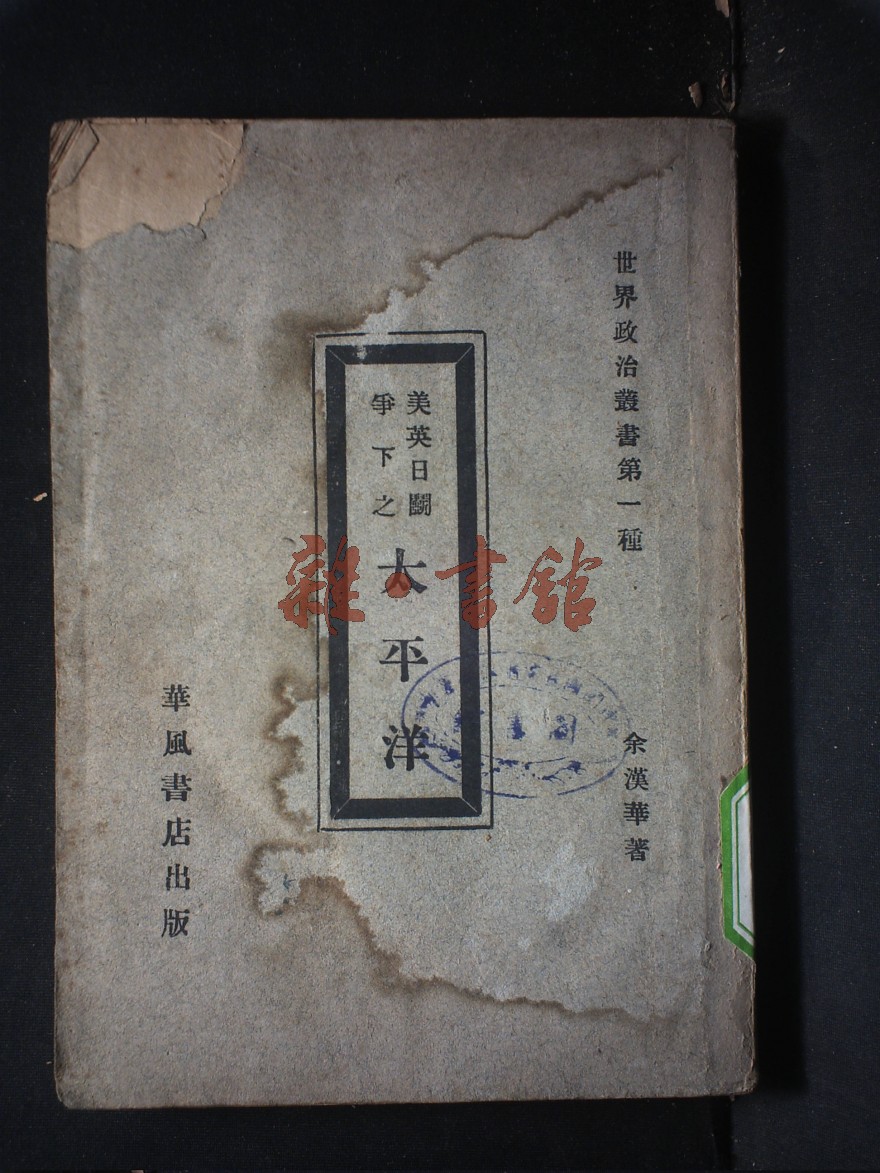 世界政治叢書第一種
余漢華著
美英日鬭
爭下之
太平洋
華風書店出版
雜·書館